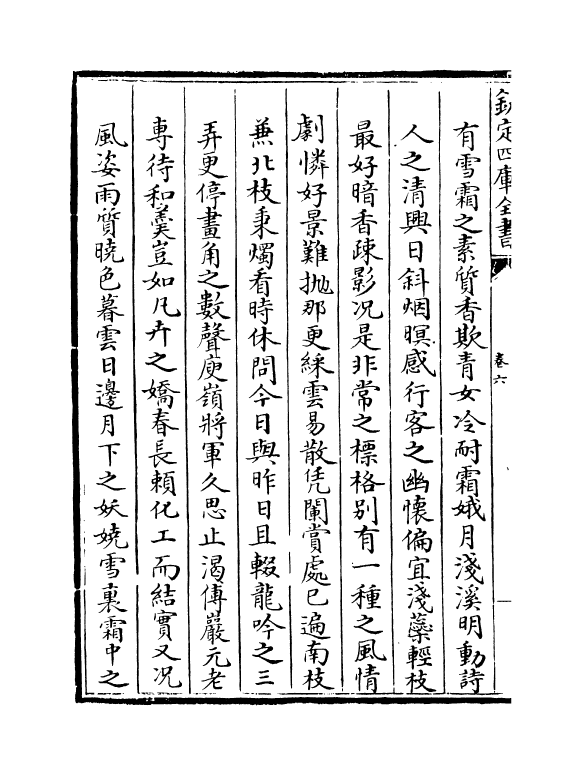 欽定四庫全書
卷六
有雪霜之素質香欺青女冷耐霜娥月淺溪明動詩
人之清興日斜烟暝感行客之幽懷偏宜淺蘂輕枝
最好暗香疎影况是非常之標格别有一種之風情
劇憐好景難抛那更綵雲易散凭闌賞處已遍南枝
兼北枝秉燭看時休問今日與昨日且輟龍吟之三
弄更停畫角之數聲庾嶺將軍久思止渴傅巖元老
専待和羹豈如凡卉之嬌春長頼化工而結實又况
風姿雨質曉色暮雲日邊月下之妖嬈雪裏霜中之